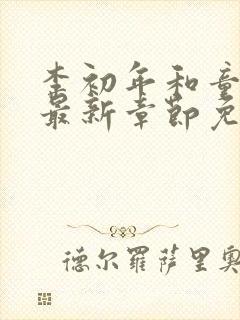 李初年和童
最新章节免
德尔罗萨里奥